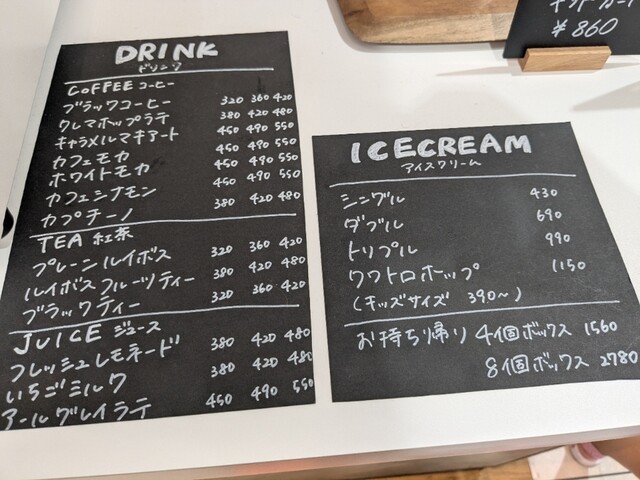 DRINK
ドリンク
COFFEE コーヒー
ブラックコーヒー 320 360 420
クレマホップラテ 380 420 480
キャラメルマキアート 450 490 550
カフェモカ 450 490 550
ホワイトモカ 450 490 550
カフェシナモン 450 490 550
カプチーノ 380 420 480
TEA 紅茶
プレーンルイボス 320 360 420
ルイボスフルーツティー 380 420 480
ブラックティー 320 360 420
JUICE ジュース
フレッシュレモネード 380 420 480
いちごミルク 380 420 480
アールグレイラテ 450 490 550
¥860
ICECREAM
アイスクリーム
シングル 430
ダブル 690
トリプル 990
クワトロホップ 1150
(キッズサイズ 390〜)
お持ち帰り 4個ボックス 1560
8個ボックス 2780